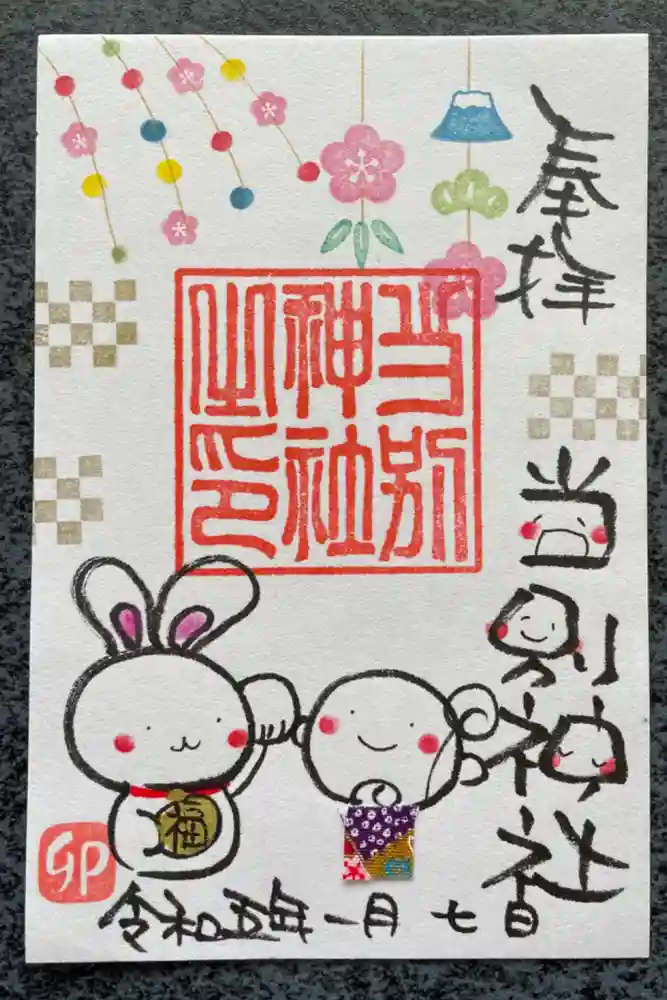 奉拝
当別神社
当別
神社
之印
福
GP
令和五年一月七日